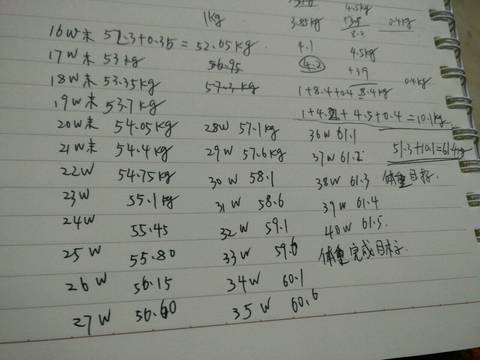 16W末 51.3+0.35 = 52.65kg
17W末 53kg
18W末 53.35kg
19W末 53.7kg
20W末 54.05kg
21W末 54.4kg
22W 54.75kg
23W 55.1kg
24W 55.45
25W 55.80
26W 56.15
27W 56.60
1kg
56.95
57.3kg
28W 57.1kg
29W 57.6kg
30W 58.1
31W 58.6
32W 59.1
33W 59.6
34W 60.1
35W 60.6
3.85kg
4.1
4.2
4.5kg
8.2
0.4kg
4.5kg
+3.9
8.4kg
0.4kg
1+8.4+0.4
1+4.2+4.5+0.4=10.1kg
36W 61.1
37W 61.2
38W 61.3
39W 61.4
40W 61.5
51.3+10.1=61.4kg
体重目标.
体重完成目标.